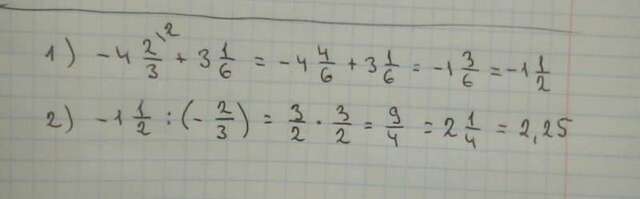 1) -4 2/3 \2 + 3 1/6 = -4 4/6 + 3 1/6 = -1 3/6 = -1 1/2
2) -1 1/2 : (- 2/3) = 3/2 · 3/2 = 9/4 = 2 1/4 = 2,25